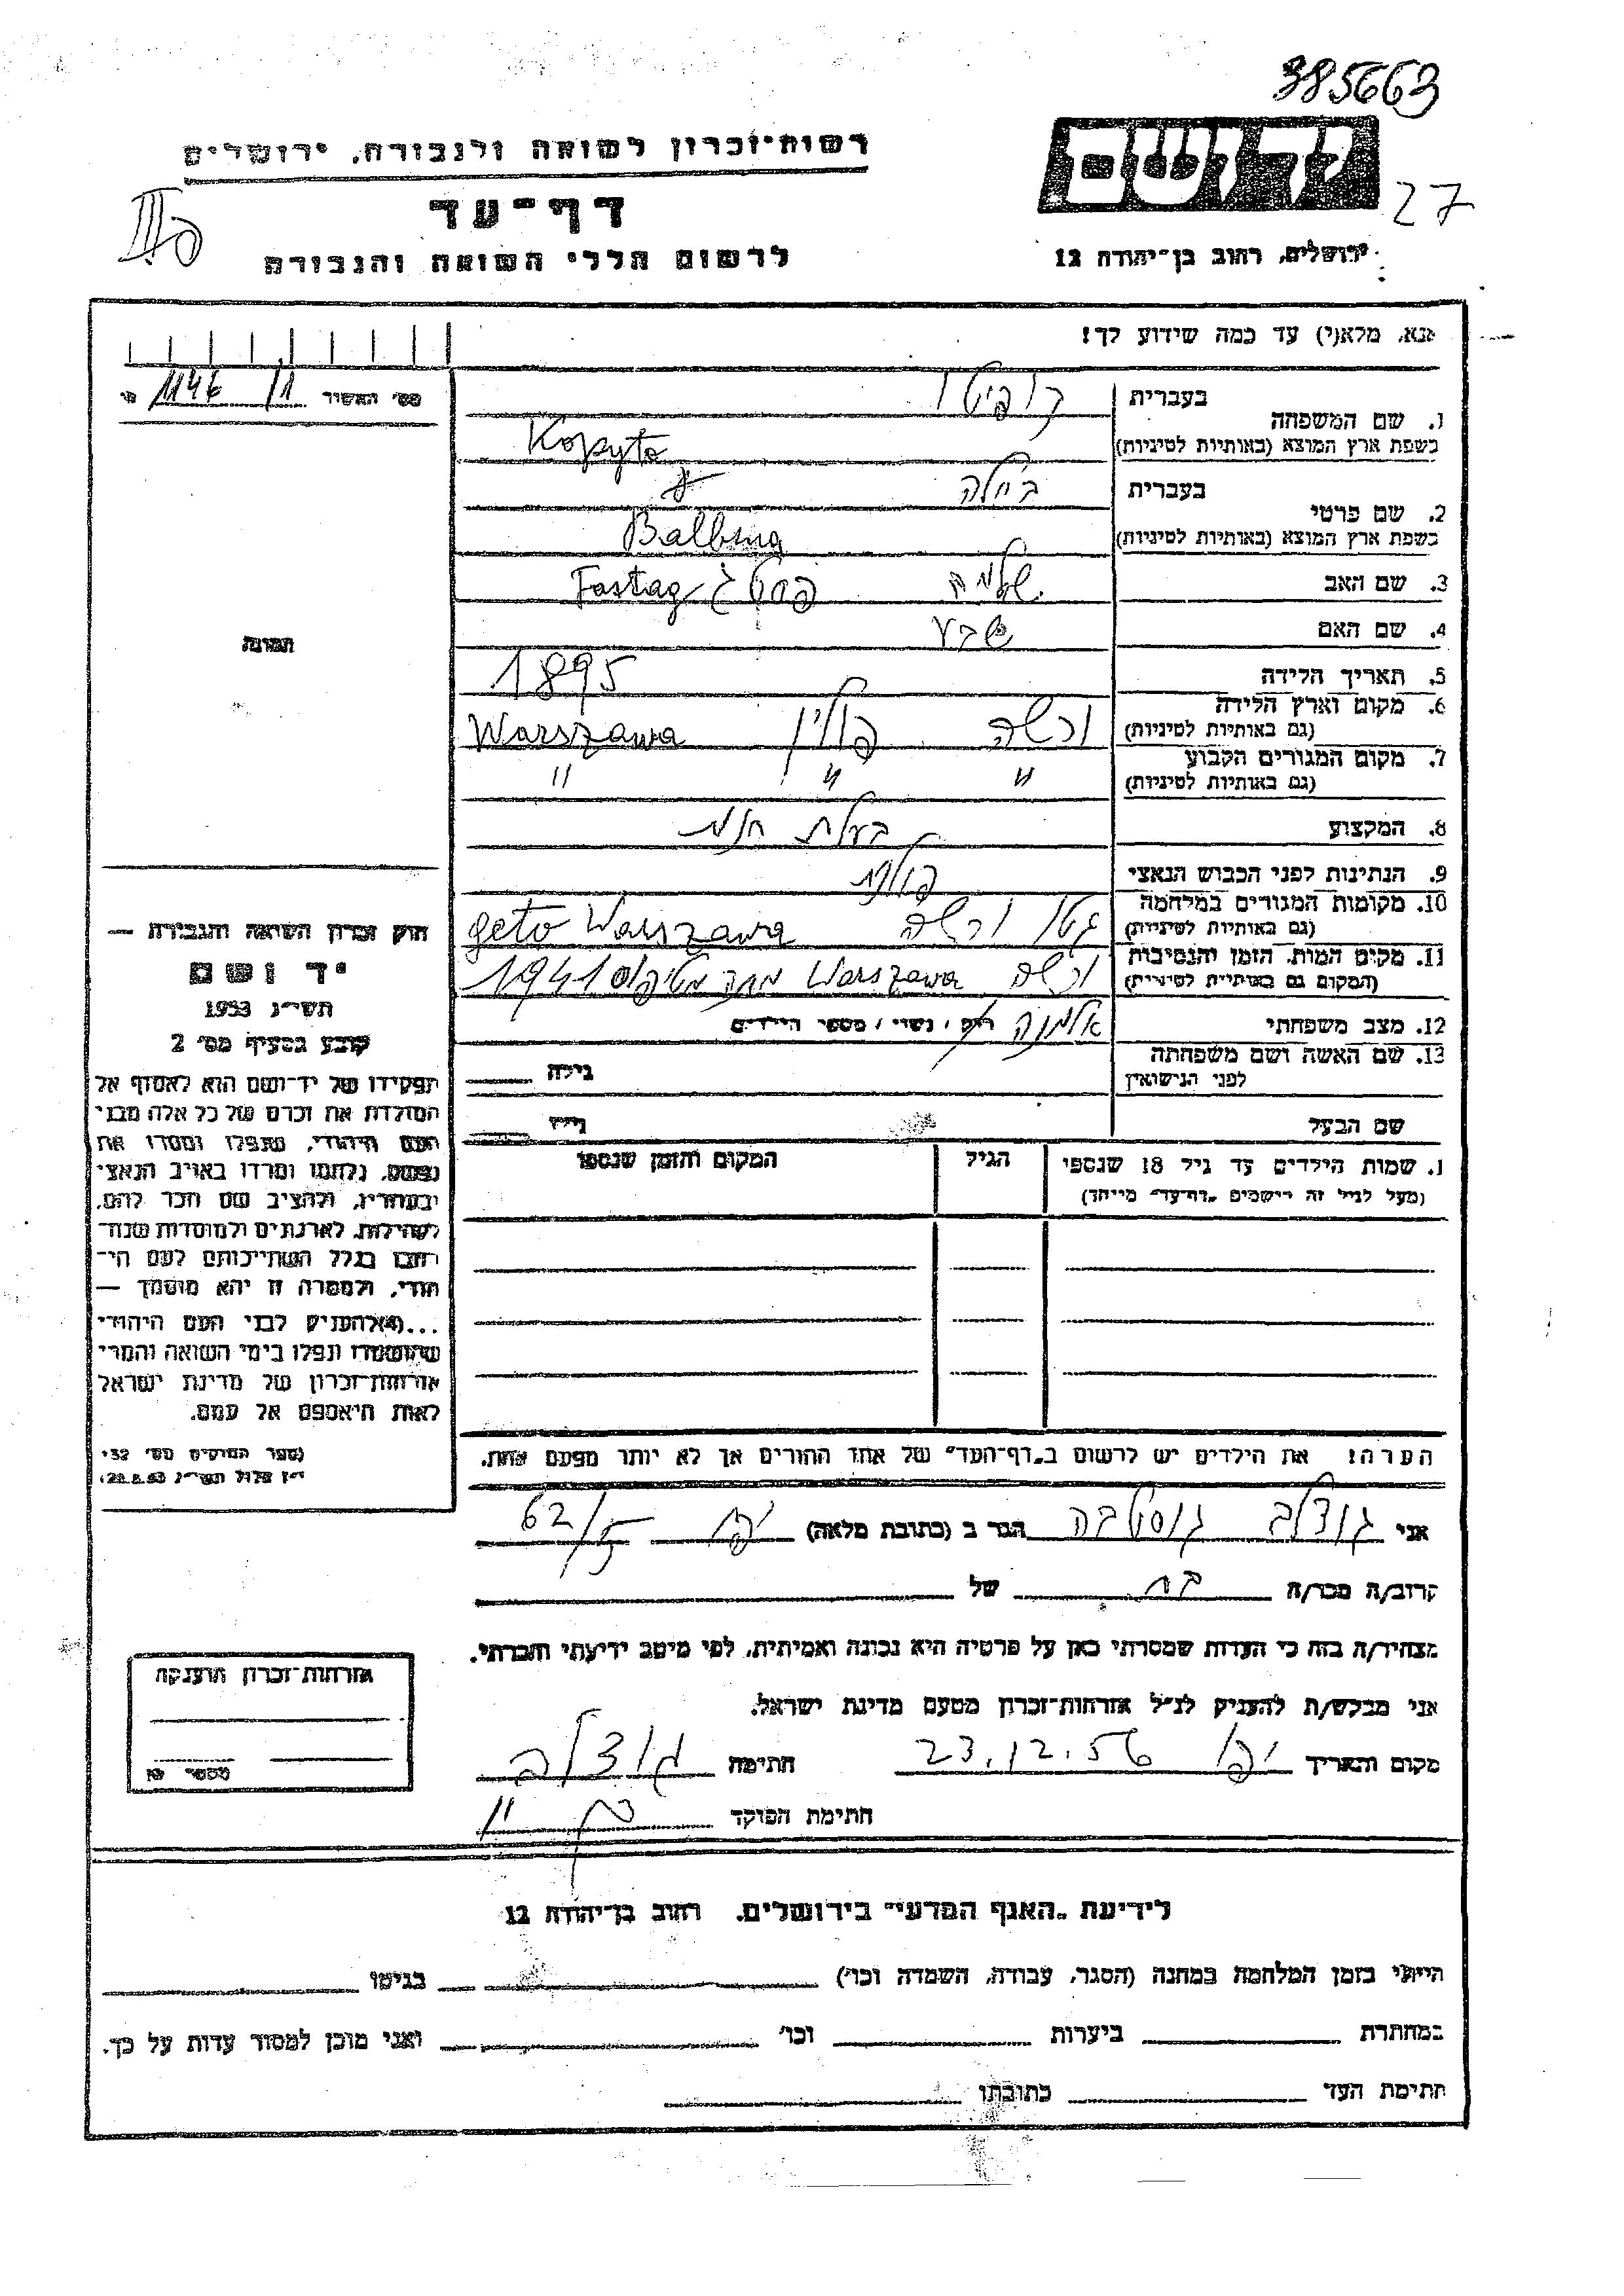 385663
רשות־זכרון לשואה ולגבורה, ירושלים
יד ושם
27
דף־עד
לרשום חללי השואה והגבורה
ירושלים, רחוב בן־יהודה 12
אנא, מלא(י) עד כמה שידוע לך!
מס' האשיר 1146
1. שם המשפחה בעברית קופיטו
בשפת ארץ המוצא (באותיות לטיניות) Kopyto
2. שם פרטי בעברית ביילה
בשפת ארץ המוצא (באותיות לטיניות) Balbina
3. שם האב שלמה פסטג Fastag
4. שם האם
5. תאריך הלידה 1895
6. מקום וארץ הלידה (גם באותיות לטיניות) ורשה פולין Warszawa
7. מקום המגורים הקבוע (גם באותיות לטיניות) " " "
8. המקצוע בעלת חנות
9. הנתינות לפני הכבוש הנאצי פולין
10. מקומות המגורים במלחמה (גם באותיות לטיניות) גטו ורשה geto Warszawa
11. מקום המות, הזמן והנסיבות (המקום גם באותיות לטיניות) ורשה Warszawa מתה מטיפוס 1941
12. מצב משפחתי אלמנה רוק / נשוי / מספר הילדים
13. שם האשה ושם משפחתה לפני הנישואין גילה
שם הבעל גילו
1. שמות הילדים עד גיל 18 שנספו הגיל המקום והזמן שנספו
(מעל לגיל זה רישמים "דף־עד" מייחד)
הערה! את הילדים יש לרשום ב"דף־העד" של אחד ההורים אך לא יותר מפעם אחת.
תמונה
חוק זכרון השואה והגבורה —
יד ושם
תשי"ג 1953
קובע בסעיף מס' 2
תפקידו של יד־ושם הוא לאסוף אל
המולדת את זכרם של כל אלה מבני
העם היהודי, שנפלו ומסרו את
נפשם, נלחמו ומרדו באויב הנאצי
ובעוזריו, ולהציב שם וזכר להם,
לקהילות, לארגונים ולמוסדות שנח־
רבו בגלל השתייכותם לעם הי־
הודי, ולמטרה זו יהא מוסמך —
...(4) להעניק לבני העם היהודי
שהושמדו ונפלו בימי השואה והמרי
אזרחות־זכרון של מדינת ישראל
לאות היאספם אל עמם.
(ספר החוקים מס' 132
י"ז אלול תשי"ג 28.8.53)
אני גוטליב גוסטבה הגר ב (כתובת מלאה) יפו 62/5
קרוב/ה מכר/ה בת של
מצהיר/ה בזה כי העדות שמסרתי כאן על פרטיה היא נכונה ואמיתית, לפי מיטב ידיעתי והכרתי.
אני מבקש/ת להעניק לנ"ל אזרחות־זכרון מטעם מדינת ישראל.
מקום ותאריך יפו 23.12.56 חתימה
חתימת הפוקד
אזרחות־זכרון הוענקה
מספר
לידיעת "האגף המדעי" בירושלים, רחוב בן־יהודה 12
הייתי בזמן המלחמה במחנה (הסגר, עבודה, השמדה וכו') בגיטו
במחתרת ביערות וכו' ואני מוכן למסור עדות על כך.
חתימת העד כתובתו